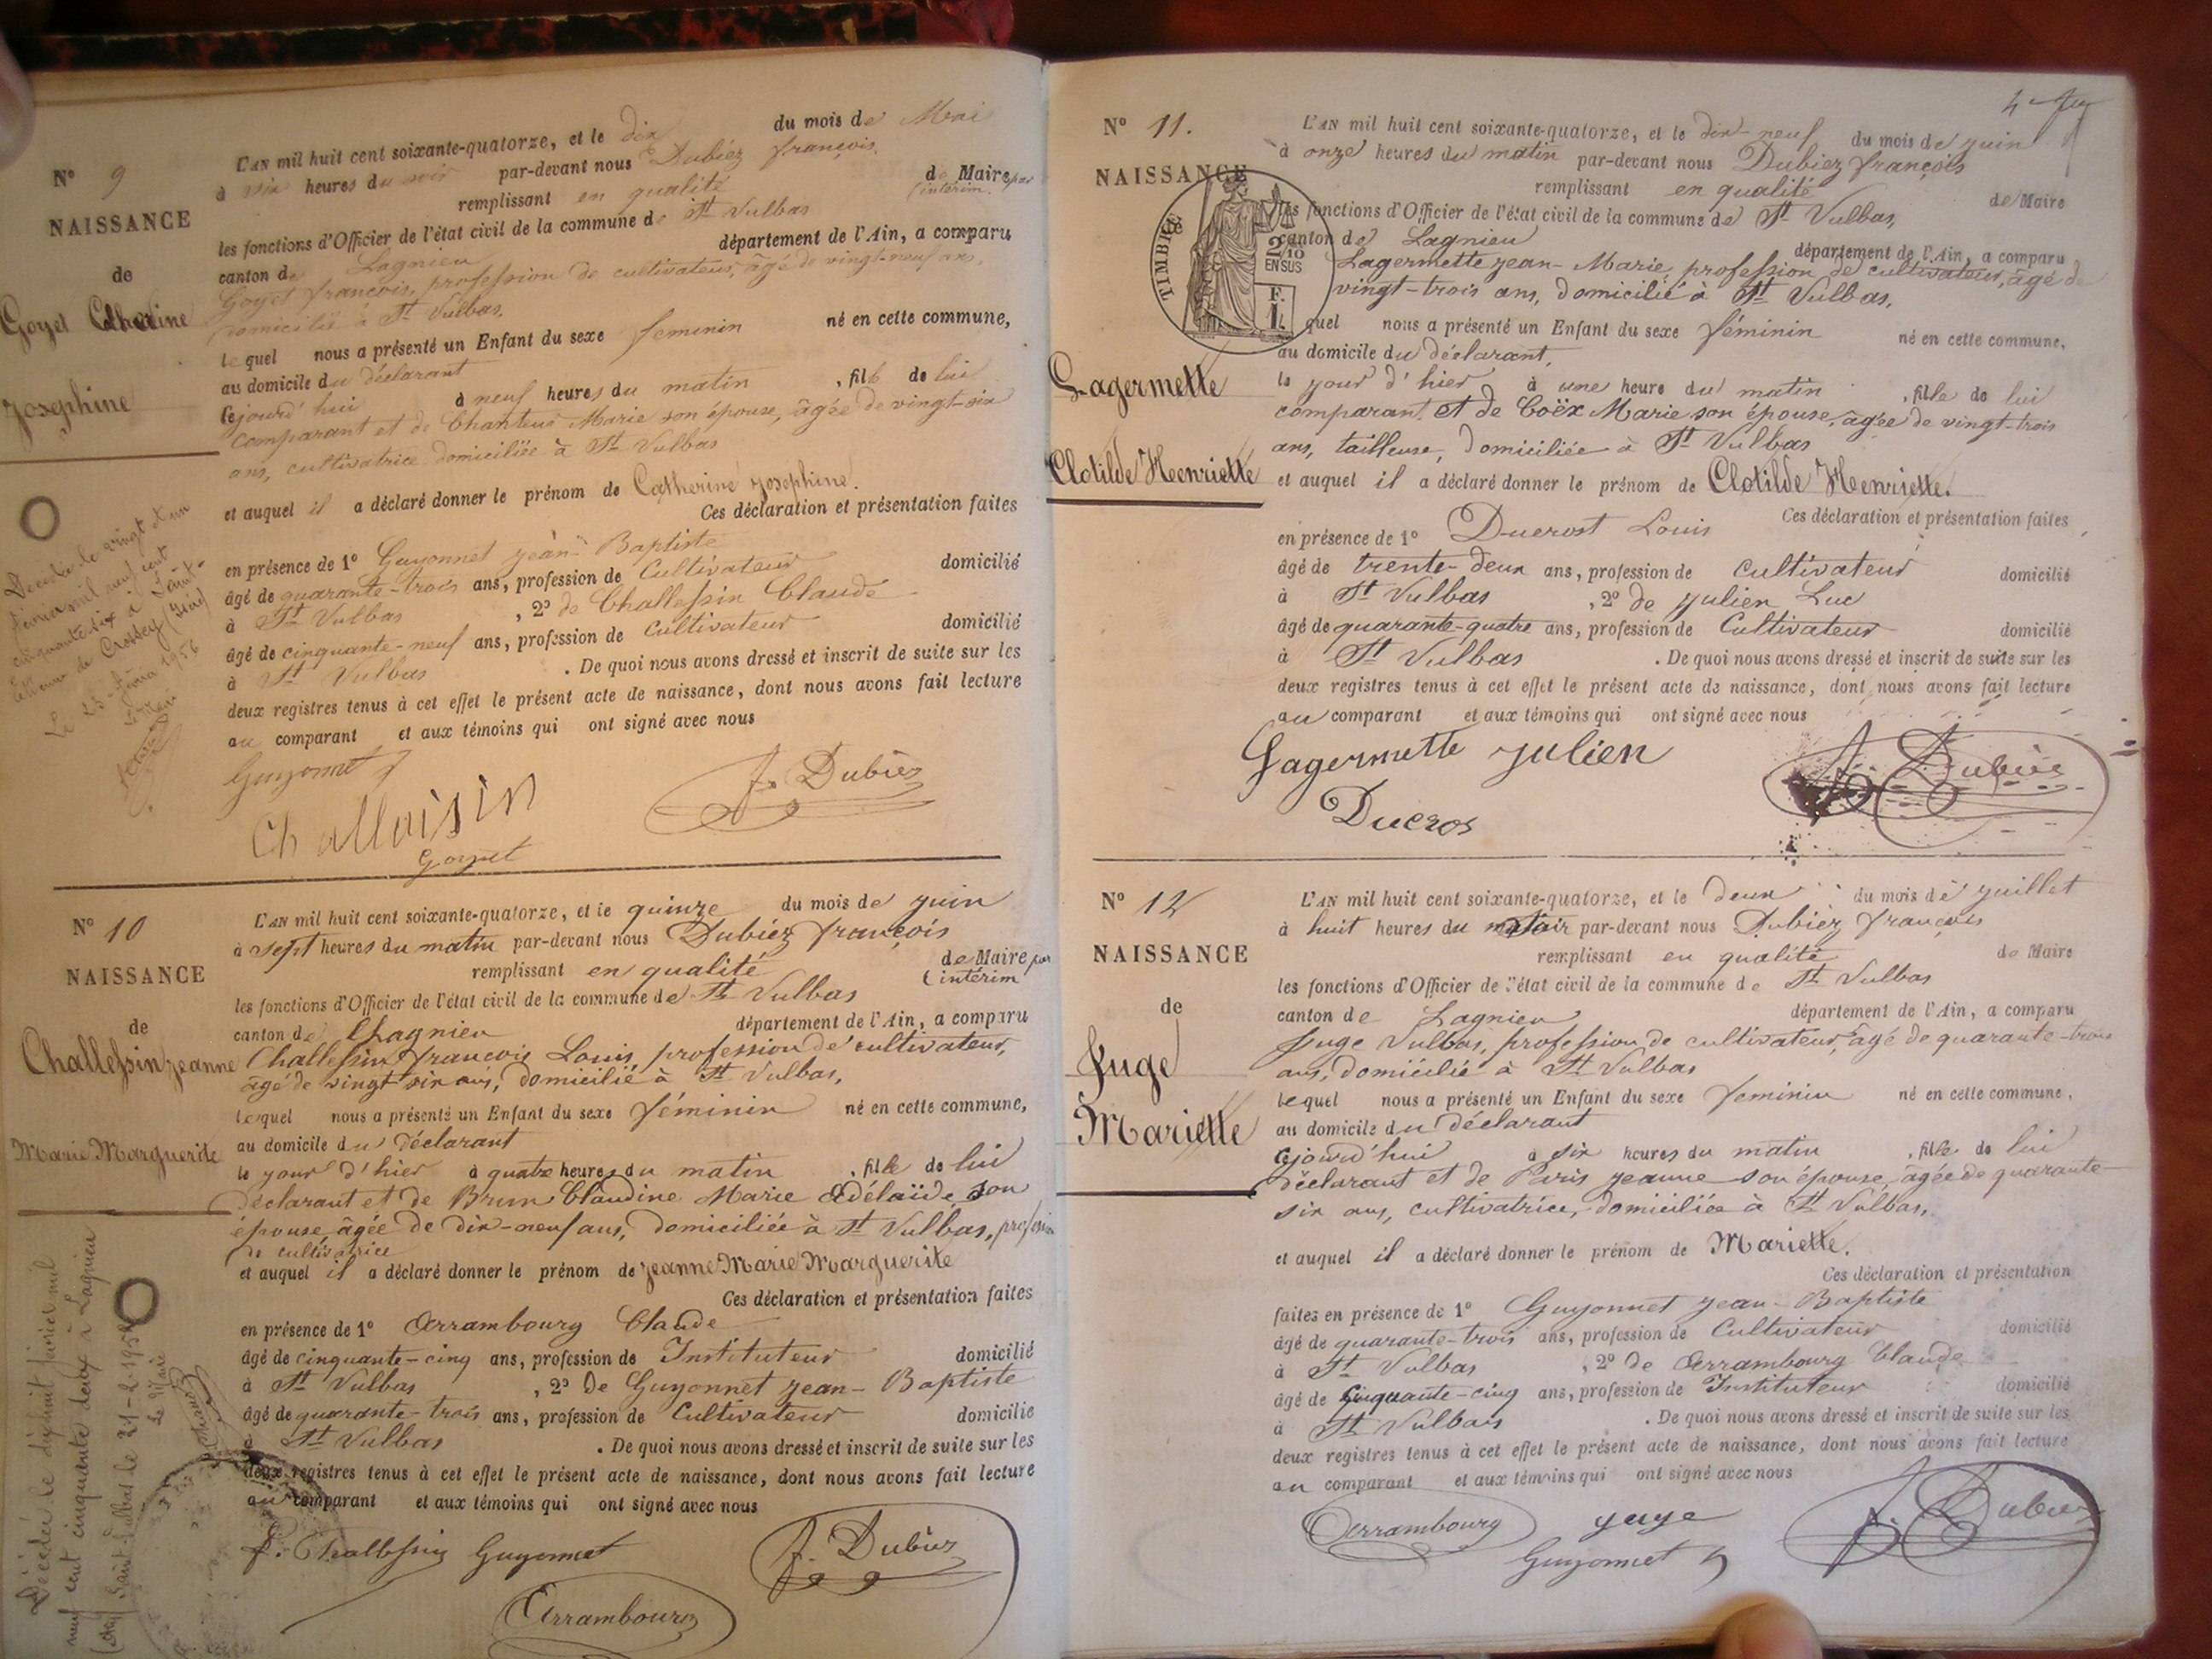 N° 9
NAISSANCE
de
Goyet Catherine
Josephine
L'AN mil huit cent soixante-quatorze, et le dix du mois de Mai
à six heures du soir par-devant nous Dubiez françois
remplissant en qualité de Maire par intérim
les fonctions d'Officier de l'état civil de la commune de St Vulbas
canton de Lagnieu département de l'Ain, a comparu
Goyet françois, profession de cultivateur, âgé de vingt-neuf ans,
domicilié à St Vulbas,
lequel nous a présenté un Enfant du sexe féminin né en cette commune,
au domicile du déclarant
cejourd'hui à neuf heures du matin, fille de lui
comparant et de Marie son épouse, âgée de vingt-six
ans, cultivatrice domiciliée à St Vulbas
et auquel il a déclaré donner le prénom de Catherine Josephine.
Ces déclaration et présentation faites
en présence de 1° Guyonnet jean-Baptiste
âgé de quarante-trois ans, profession de Cultivateur domicilié
à St Vulbas, 2° de Challessin Claude
âgé de cinquante-neuf ans, profession de Cultivateur domicilié
à St Vulbas. De quoi nous avons dressé et inscrit de suite sur les
deux registres tenus à cet effet le présent acte de naissance, dont nous avons fait lecture
au comparant et aux témoins qui ont signé avec nous
Guyonnet
J. Dubiez
Challaisin
Goyet
Décédée le vingt et un
février mil neuf cent
cinquante six à Saint-
Etienne de Crossey (Isère)
le 25 février 1956
N° 10
NAISSANCE
de
Challessin jeanne
Marie Marguerite
L'AN mil huit cent soixante-quatorze, et le quinze du mois de juin
à sept heures du matin par-devant nous Dubiez françois
remplissant en qualité de Maire par intérim
les fonctions d'Officier de l'état civil de la commune de St Vulbas
canton de Lagnieu département de l'Ain, a comparu
Challessin françois Louis, profession de cultivateur,
âgé de vingt six ans, domicilié à St Vulbas,
lequel nous a présenté un Enfant du sexe féminin né en cette commune,
au domicile du déclarant
le jour d'hier à quatre heures du matin, fille de lui
déclarant et de Brun Claudine Marie Adélaïde son
épouse, âgée de dix-neuf ans, domiciliée à St Vulbas, profession
de cultivatrice
et auquel il a déclaré donner le prénom de jeanne Marie Marguerite
Ces déclaration et présentation faites
en présence de 1° Arrambourg Claude
âgé de cinquante-cinq ans, profession de Instituteur domicilié
à St Vulbas, 2° de Guyonnet jean-Baptiste
âgé de quarante-trois ans, profession de Cultivateur domicilié
à St Vulbas. De quoi nous avons dressé et inscrit de suite sur les
deux registres tenus à cet effet le présent acte de naissance, dont nous avons fait lecture
au comparant et aux témoins qui ont signé avec nous
f. Challessin Guyonnet J. Dubiez
Arrambourg
Décédée le dixhuit février mil
neuf cent cinquante deux à Lagnieu
(Ain) Saint-Vulbas le 21-2-1952
Le Maire
4
N° 11.
NAISSANCE
TIMBRE
2/10
EN SUS
F.
1.
Lagermette
Clotilde Henriette
L'AN mil huit cent soixante-quatorze, et le dix-neuf du mois de juin
à onze heures du matin par-devant nous Dubiez françois
remplissant en qualité de Maire
les fonctions d'Officier de l'état civil de la commune de St Vulbas,
canton de Lagnieu département de l'Ain, a comparu
Lagermette jean-Marie, profession de cultivateur, âgé de
vingt-trois ans, domicilié à St Vulbas,
quel nous a présenté un Enfant du sexe féminin né en cette commune,
au domicile du déclarant,
le jour d'hier à une heure du matin, fille de lui
comparant, et de Coëx Marie son épouse, âgée de vingt-trois
ans, tailleuse, domiciliée à St Vulbas
et auquel il a déclaré donner le prénom de Clotilde Henriette.
Ces déclaration et présentation faites
en présence de 1° Ducrost Louis
âgé de trente-deux ans, profession de Cultivateur domicilié
à St Vulbas, 2° de julien Luc
âgé de quarante-quatre ans, profession de Cultivateur domicilié
à St Vulbas. De quoi nous avons dressé et inscrit de suite sur les
deux registres tenus à cet effet le présent acte de naissance, dont nous avons fait lecture
au comparant et aux témoins qui ont signé avec nous
Lagermette julien J. Dubiez
Ducros
N° 12
NAISSANCE
de
Juge
Mariette
L'AN mil huit cent soixante-quatorze, et le deux du mois de juillet
à huit heures du soir par-devant nous Dubiez françois
remplissant en qualité de Maire
les fonctions d'Officier de l'état civil de la commune de St Vulbas
canton de Lagnieu département de l'Ain, a comparu
Juge Vulbas, profession de cultivateur, âgé de quarante-trois
ans, domicilié à St Vulbas
lequel nous a présenté un Enfant du sexe féminin né en cette commune,
au domicile du déclarant
cejourd'hui à six heures du matin, fille de lui
déclarant et de Paris jeanne son épouse, âgée de quarante-
six ans, cultivatrice, domiciliée à St Vulbas,
et auquel il a déclaré donner le prénom de Mariette.
Ces déclaration et présentation
faites en présence de 1° Guyonnet jean-Baptiste
âgé de quarante-trois ans, profession de Cultivateur domicilié
à St Vulbas, 2° de Arrambourg Claude
âgé de cinquante-cinq ans, profession de Instituteur domicilié
à St Vulbas. De quoi nous avons dressé et inscrit de suite sur les
deux registres tenus à cet effet le présent acte de naissance, dont nous avons fait lecture
au comparant et aux témoins qui ont signé avec nous
Arrambourg juge J. Dubiez
Guyonnet